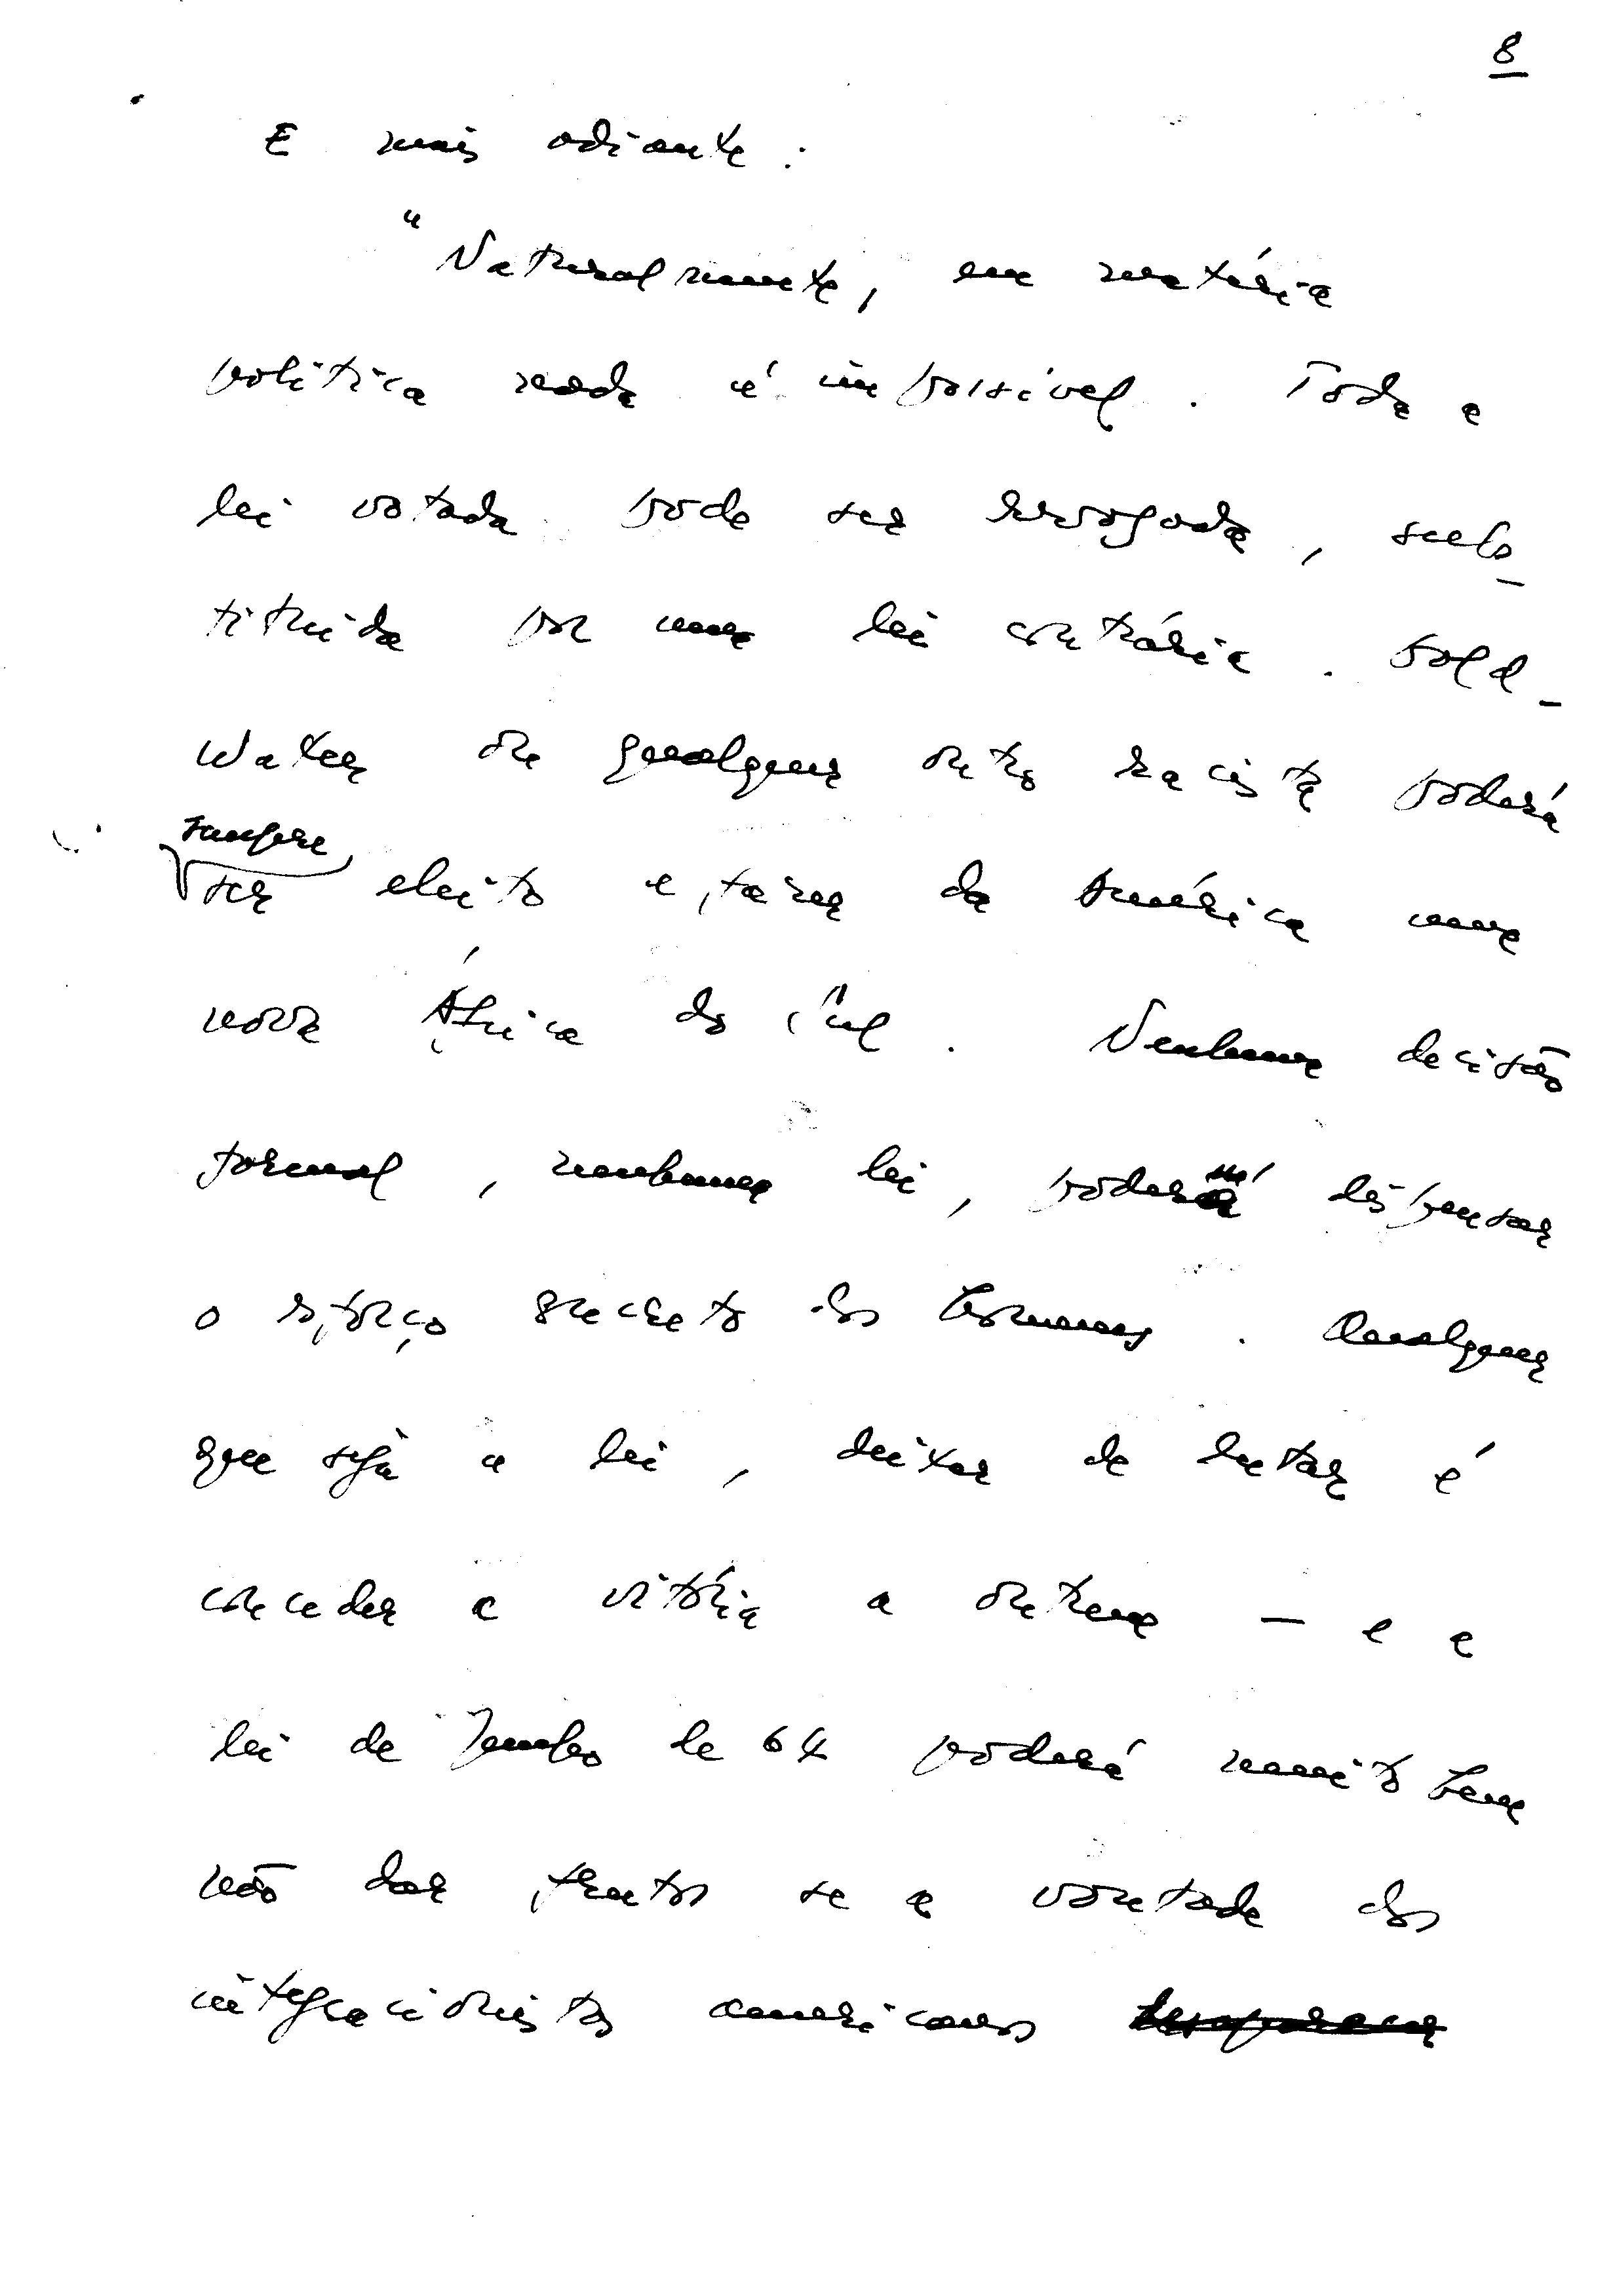 8
E mais adiante:
"Naturalmente, em matéria
política nada é impossível. Toda a
lei votada pode ser revogada, subs-
tituída por uma lei contrária. Gold-
water ou qualquer outro racista poderá
sempre
ser eleito e fazer da América uma
nova África do Sul. Nenhuma decisão
formal, nenhuma lei, poderá dispensar
o esforço concreto dos homens. Qualquer
que seja a lei, deixar de lutar é
conceder a vitória a outrem — e a
lei de Junho de 64 poderá muito bem
não dar frutos se a vontade dos
integracionistas americanos